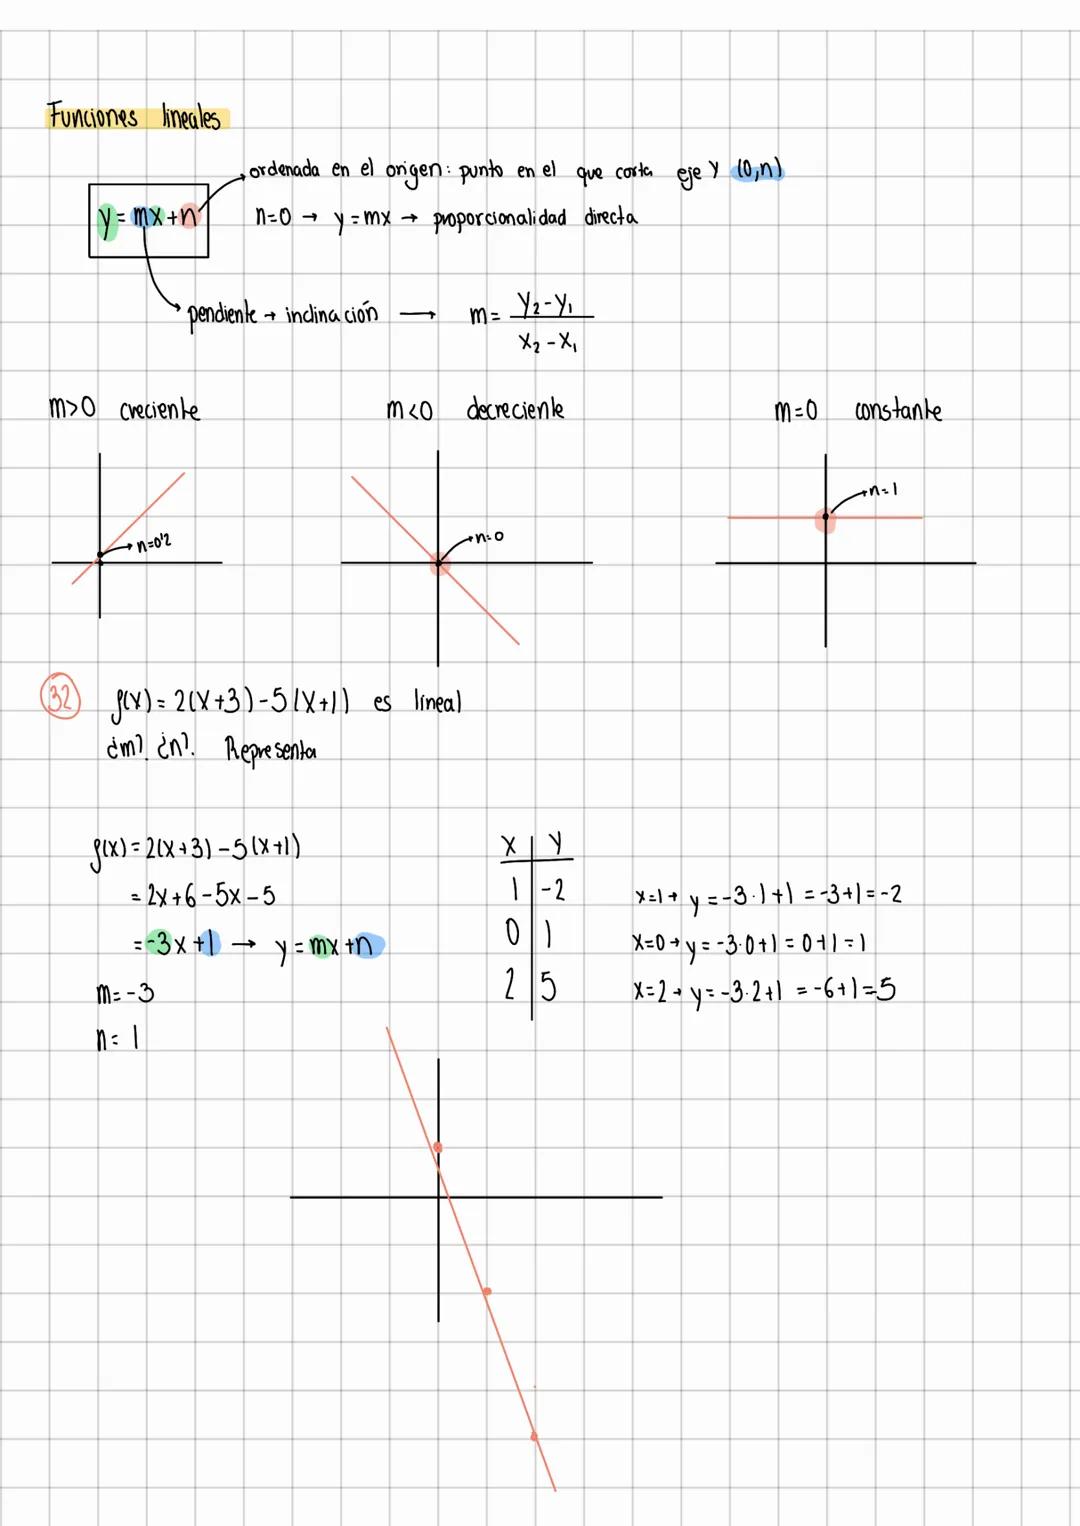 Funciones lineales
ordenada en el origen: punto en el que corta eje Y (0,n)
y = mx + n
n=0 → y = mx → proporcionalidad directa
pendiente → inclinación → m = (Y₂-Y₁)/(X₂-X₁)
m>0 creciente
m<0 decreciente
m=0 constante
n=0'2
n=0
n=1
32 f(x) = 2(x+3)-5(x+1) es lineal
¿m? ¿n?. Representa
f(x) = 2(x+3)-5(x+1)
= 2x+6-5x-5
= -3x+1 → y = mx+n
m=-3
n=1
X | Y
1 | -2
0 | 1
2 | 5
x=1 → y = -3·1+1 = -3+1 = -2
x=0 → y = -3·0+1 = 0+1 = 1
x=2 → y = -3·2+1 = -6+1 = 5